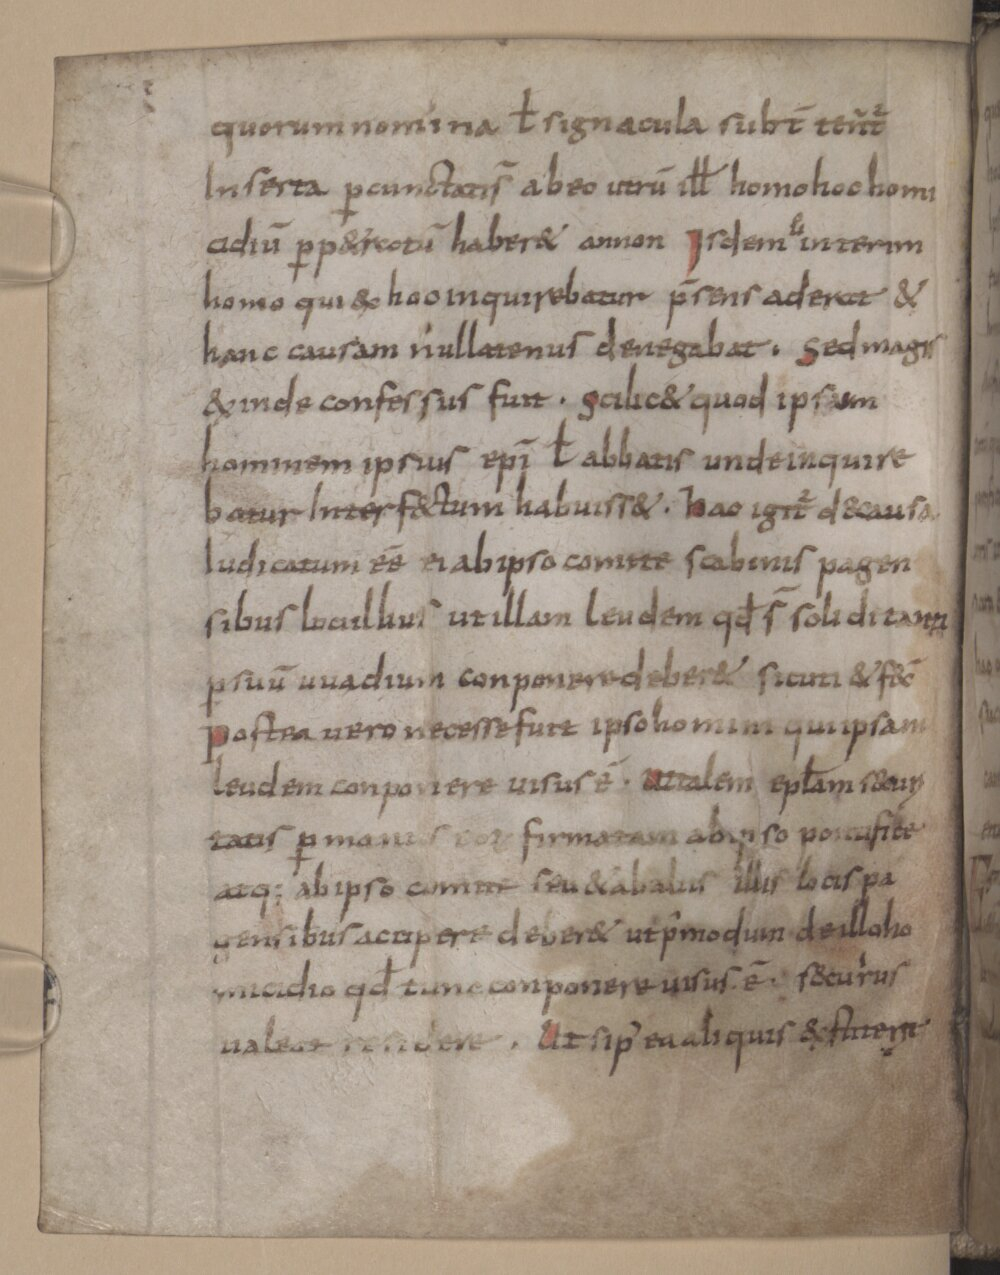 quorum nomina ł signacula subt̄ ten̄t᷑
Inserta ꝑcunctatis̄ ab eo utrū ill̄ homo hoc homi
cidiū ꝑp&ratū haber& annon Isdem ū interim
homo qui & hoc inquirebatur p̄sens aderat &
hanc causam nullatenus denegabat. Sed magis
& inde confessus fuit. Scilic& quod ipsum
hominem ipsius epī ł abbatis unde inquire
batur Interf&ctum habuiss&. Hac igit᷑ d& causa
Iudicatum ēē ei ab ipso comite scabinis pagen
sibus loci illius ut illam leudem qd̄ s̄ solidi tanti
ꝑ suū uuadium conponere deber& sicuti & fec̄
Postea uero necesse fuit ipso homini qui ipsam
leudem conponere uisus ē. Ut talem epłam securi
tatis ꝑ manus firmatam ab ipso pontifice
atq; ab ipso comite seu & ab aliis illis locis pa
gensibus accipere deber& ut p̄modum de illo ho
micidio qd̄ tunc conponere uisus ē. securus
ualeat residere. Ut si p̄ ea aliquis &